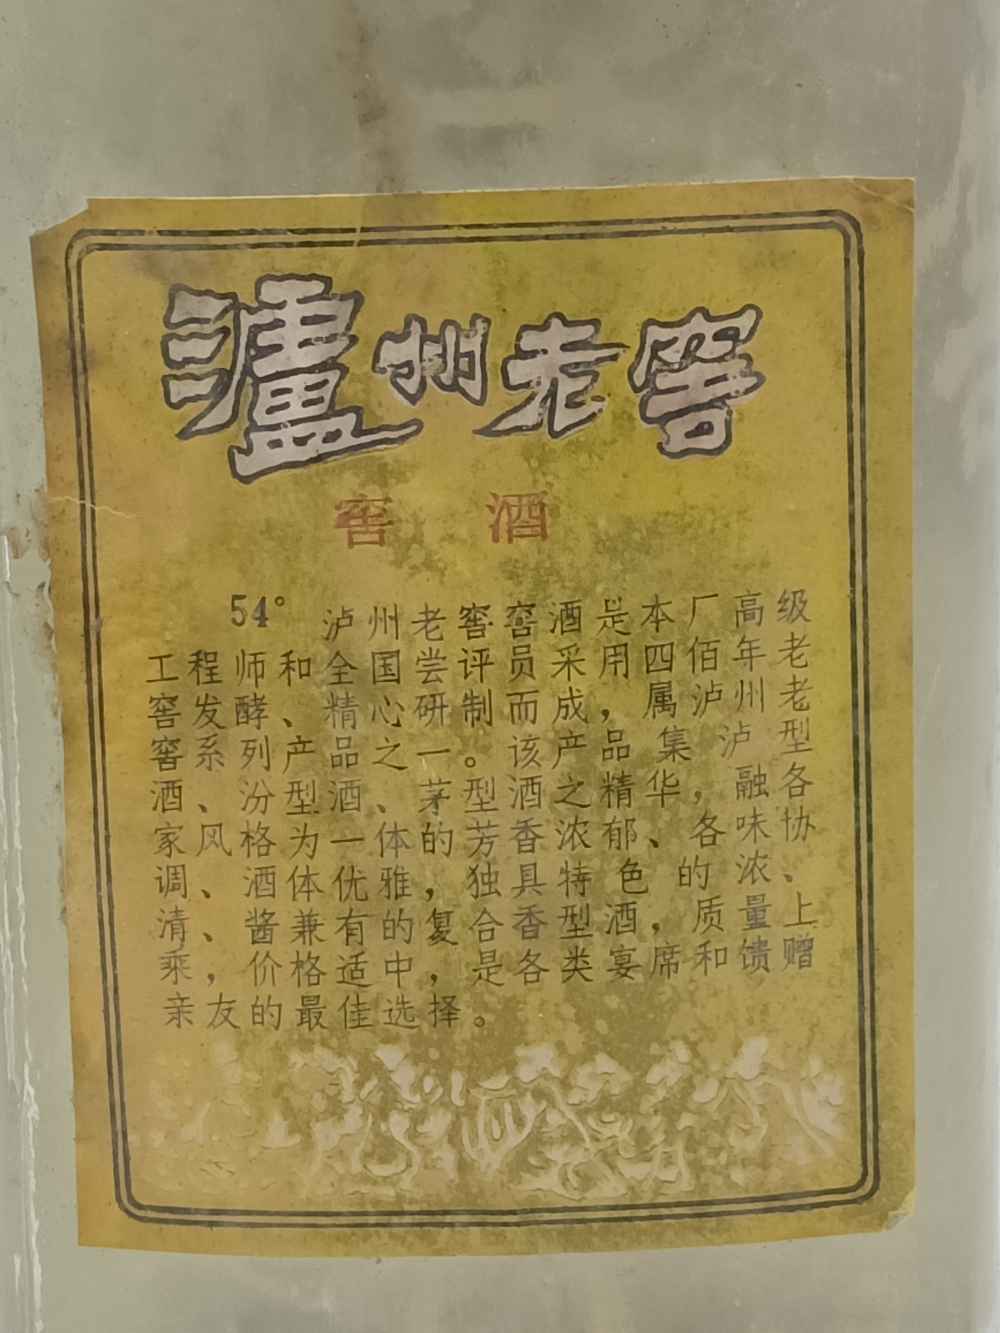 泸州老窖
窖酒
54° 泸州老窖窖酒是本厂高级
工程师和全国尝评员采用四佰年老
窖发酵、精心研制而成，属泸州老
窖系列产品之一。该产品集泸型
酒、汾型酒、茅型酒之精华，融各
家风格为一体的芳香浓郁、各味协
调、酒体优雅，独具特色的浓、
清、酱兼有的复合香型酒，质量上
乘，价格适中，是各类宴席和馈赠
亲友的最佳选择。